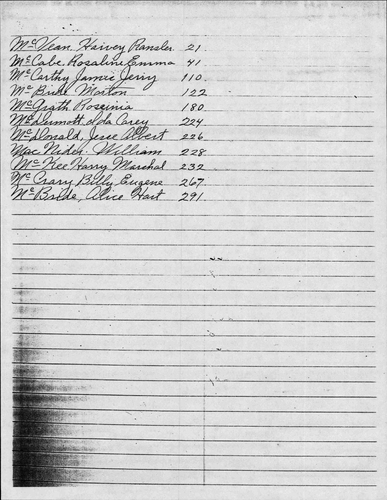 McVean, Harvey Ransler 21.
McCabe, Rosaline Emma 41
McCarthy Jamie Jerry 110
McBride Morton 122
McGrath Roseinia 180
McDermott, Ida Carey 224
McDonald, Jesse Albert 226
MacNider William 228
McKee Harry Marchal 232
McCrary Billy Eugene 267.
McBride, Alice Hart 291.